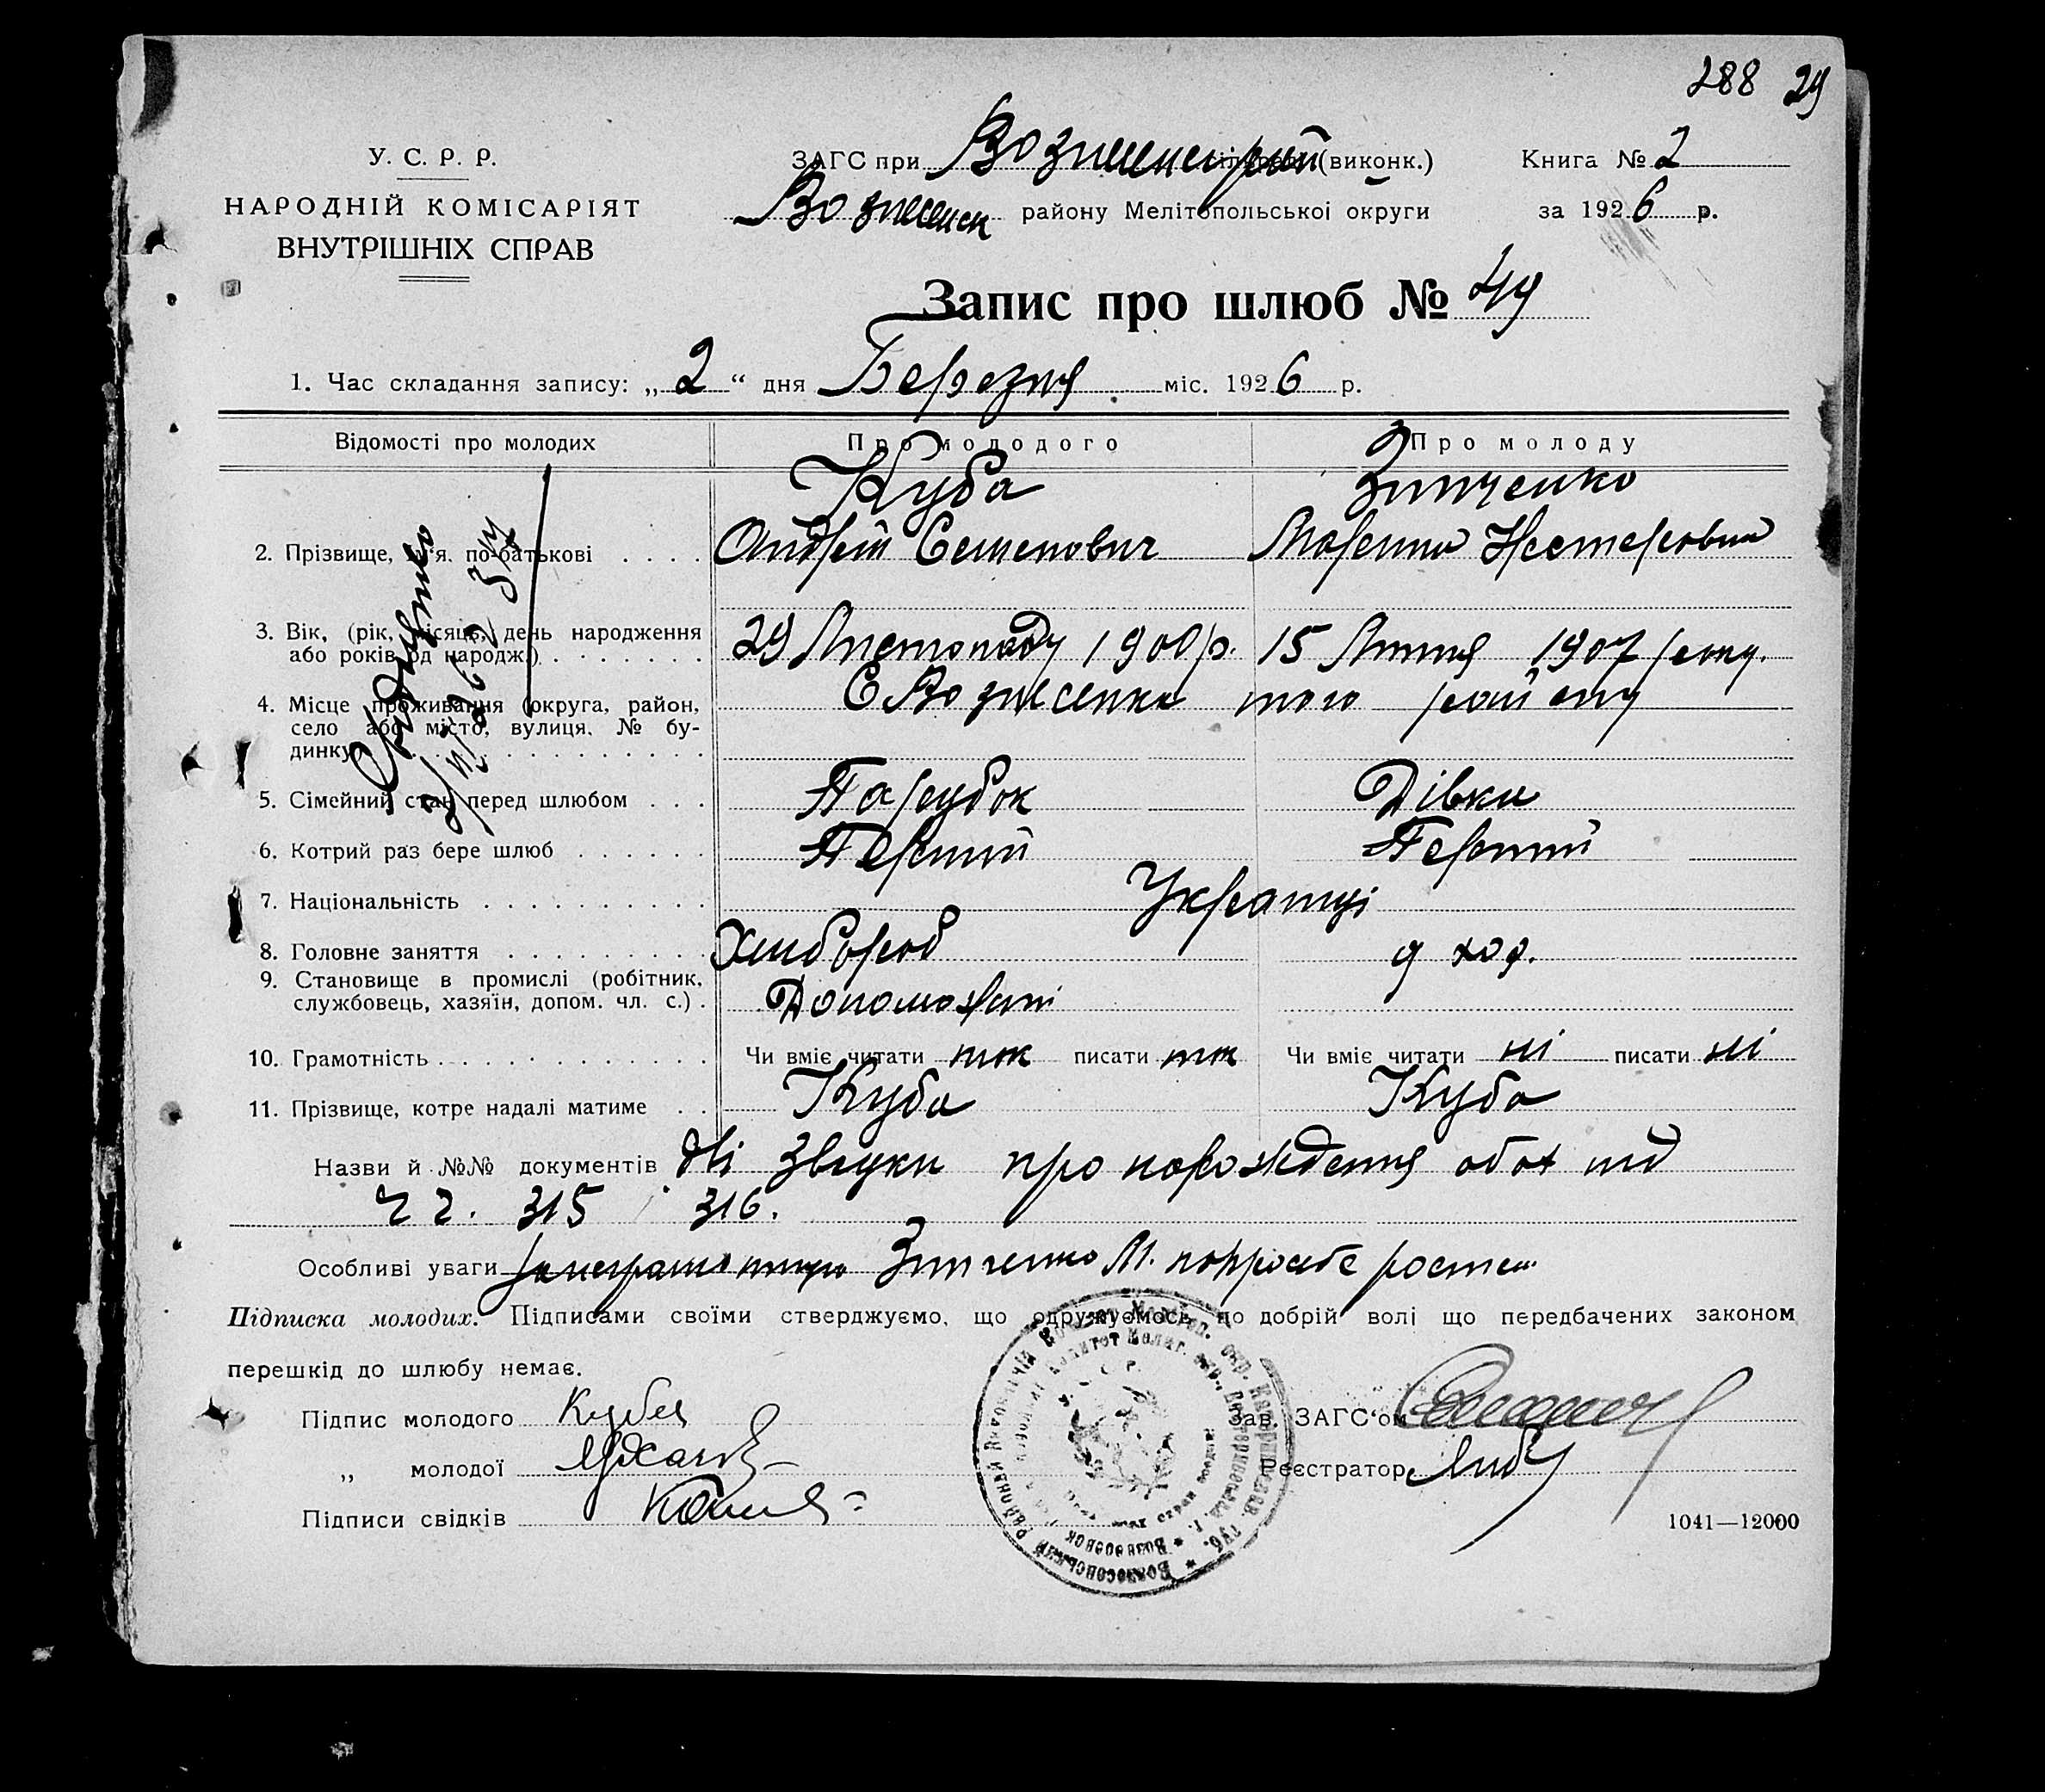 288 29
У. С. Р. Р.
НАРОДНІЙ КОМІСАРІЯТ
ВНУТРІШНІХ СПРАВ
ЗАГС при (виконк.) Книга № 2
району Мелітопольської округи за 1926 р.
Запис про шлюб № 49
1. Час складання запису: „2“ дня Березня міс. 1926 р.
Відомості про молодих Про молодого Про молоду
Куба Зинченко
2. Прізвище, ім'я. по-батькові Андрій Семенович Нестеровна
3. Вік, (рік, місяць, день народження
або років од народж.) 29 Листопаду 1900 р. 15 Липня 1907 року.
4. Місце проживання (округа, район, С Вознесенка того району
село або місто, вулиця. № бу-
динку)
5. Сімейний стан перед шлюбом Парубок Дівка
6. Котрий раз бере шлюб Первий Первий
7. Національність Українці
8. Головне заняття Хлибороб д хоз.
9. Становище в промислі (робітник,
службовець, хазяїн, допом. чл. с.)
10. Грамотність Чи вміє читати так писати так Чи вміє читати ні писати ні
11. Прізвище, котре надалі матиме Куба Куба
Назви й №№ документів Дві звідки про нарождения обох під
ч ч. 315 316.
Особливі уваги Зинченко М.
Підписка молодих. Підписами своїми стверджуємо, що одружуємось по добрій волі що передбачених законом
перешкід до шлюбу немає.
Підпис молодого Куба Зав. ЗАГС'ом
„ молодої Реєстратор
Підписи свідків
1041—12000